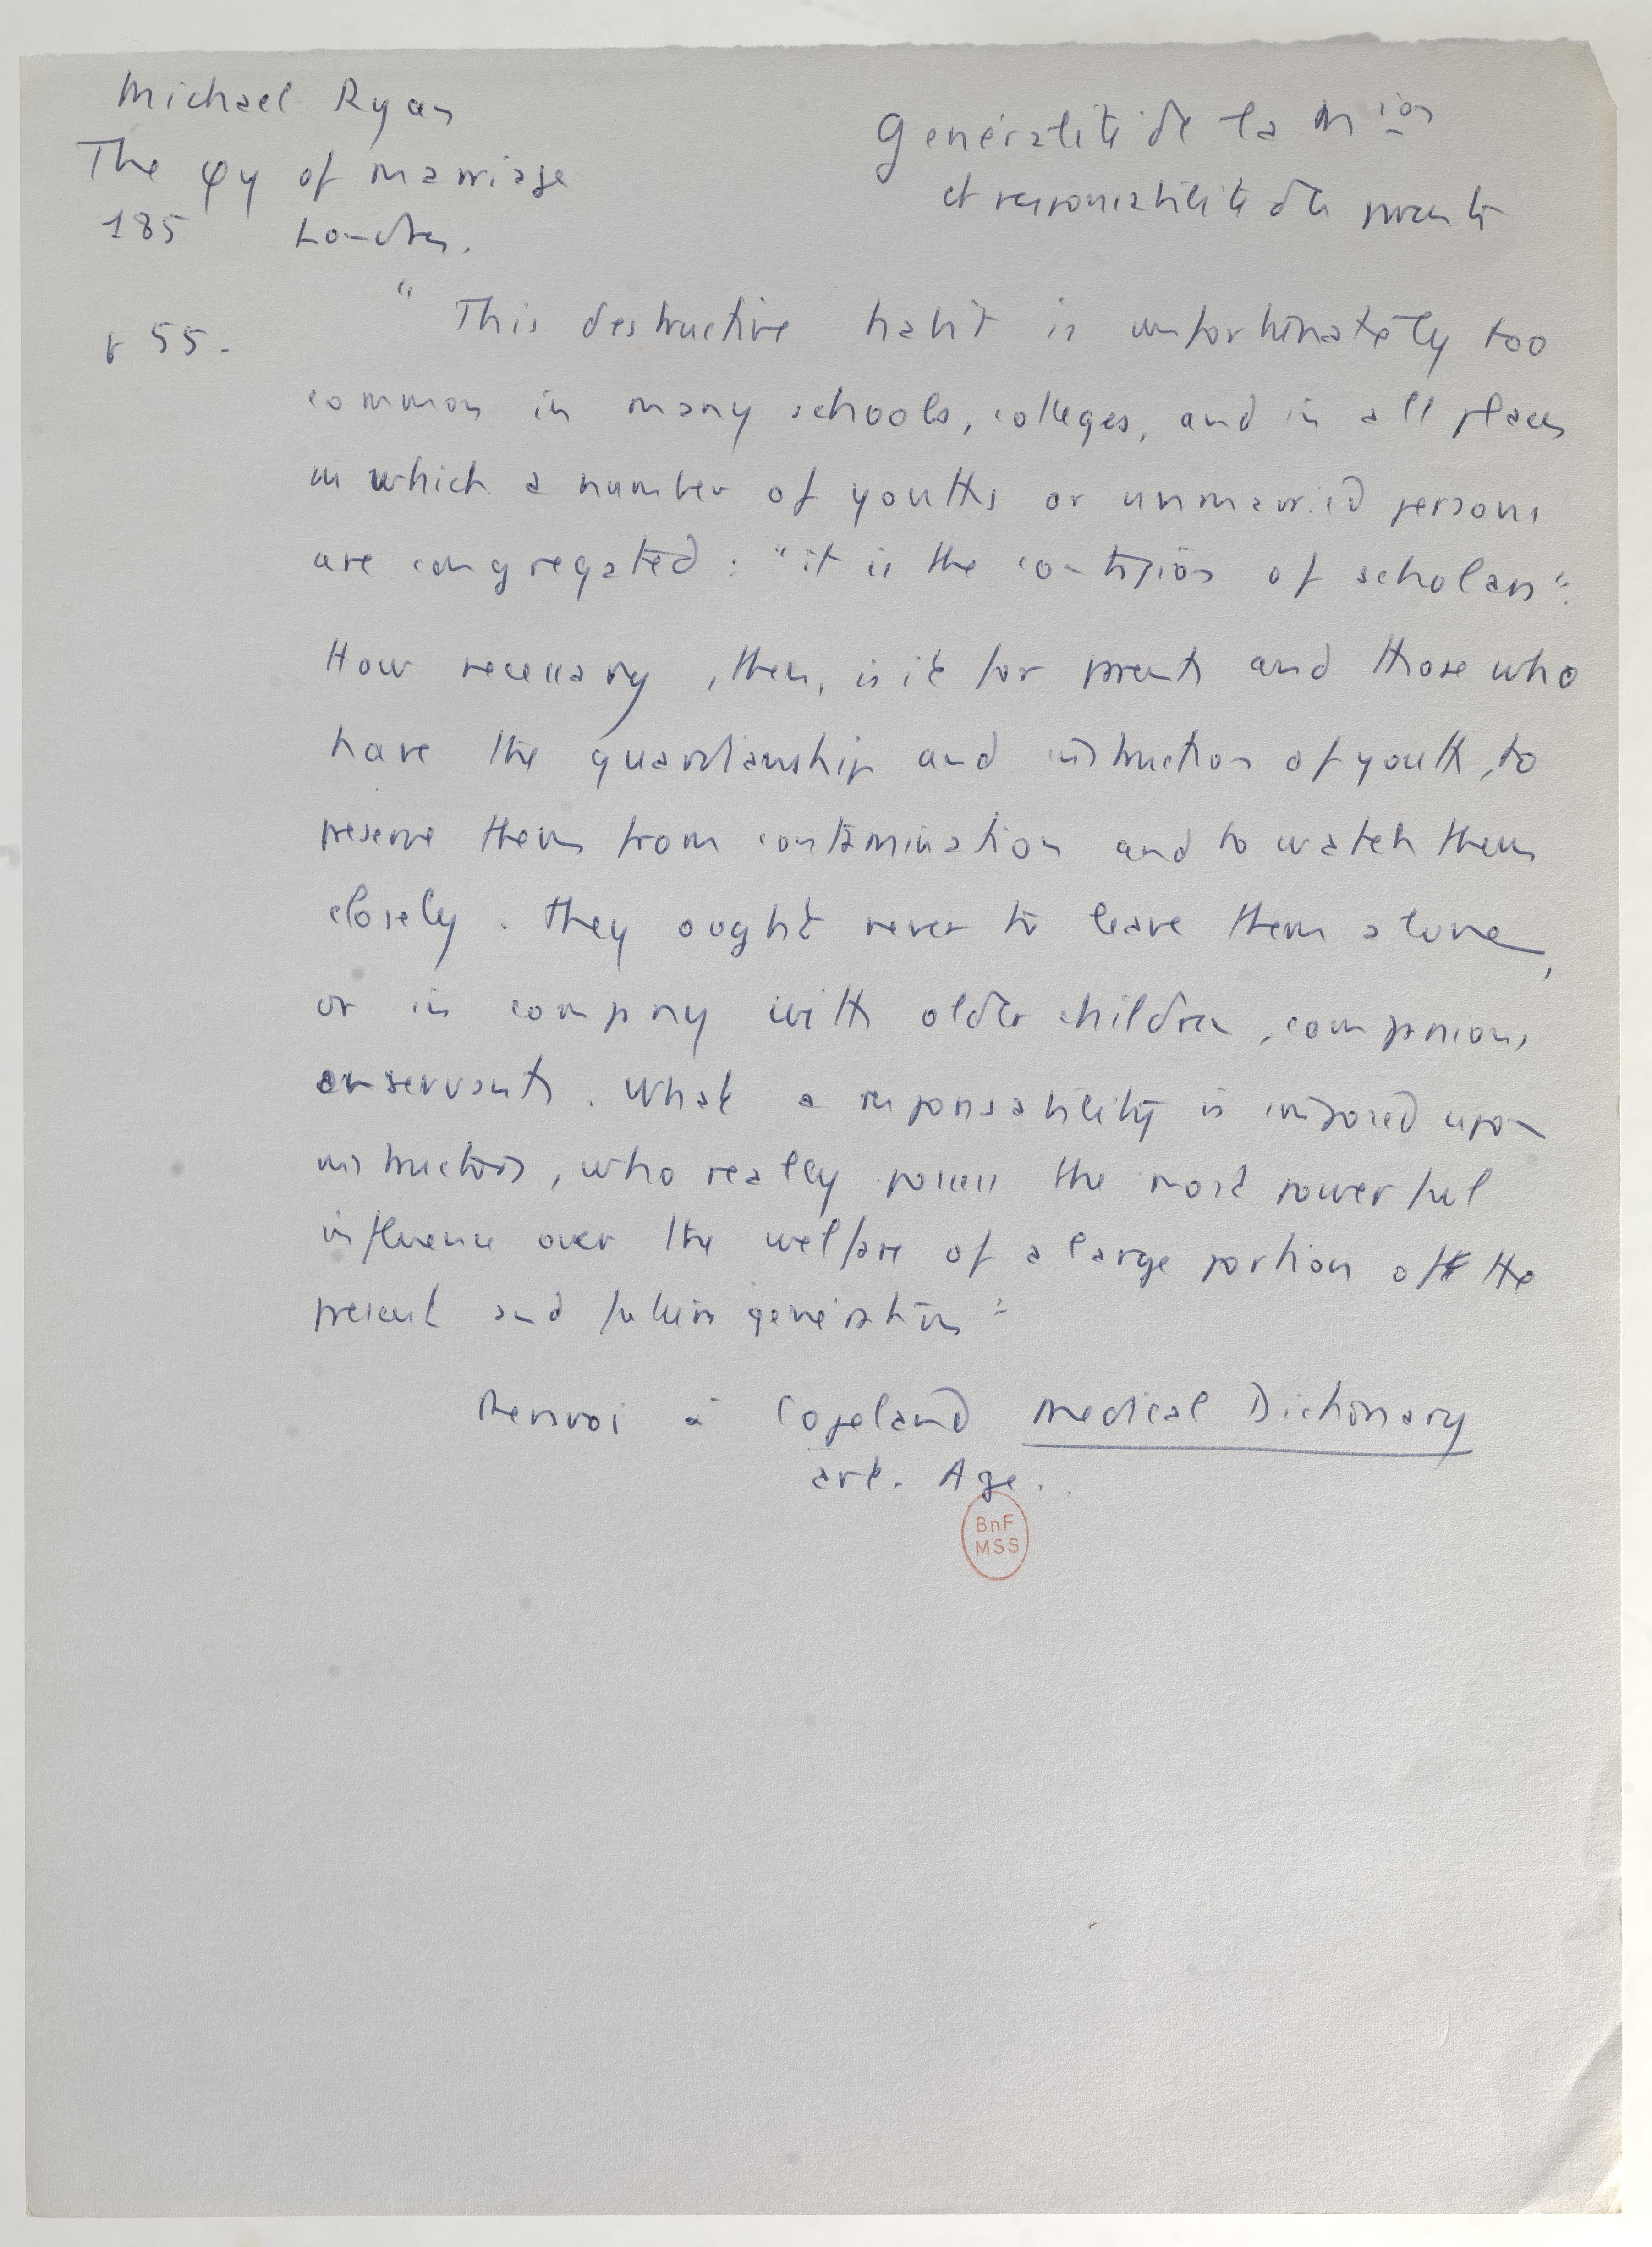 Michael Ryan
The φy of marriage
185 Londres.
Généralité de la Mion
et responsabilité des parents
p 55.
“ This destructive habit is unfortunately too
common in many schools, colleges, and in all places
in which a number of youths or unmarried persons
are congregated : “it is the contagion of scholars”.
How necessary, then, is it for parents and those who
have the guardianship and instruction of youth, to
preserve them from contamination and to watch them
closely. They ought never to leave them alone,
or in company with older children, companions,
or servants. What a responsability is imposed upon
instructors, who really possess the most powerful
influence over the welfare of a large portion of the
present and future generations”
Renvoi à Copeland Medical Dictionary
art. Age.
BnF
MSS